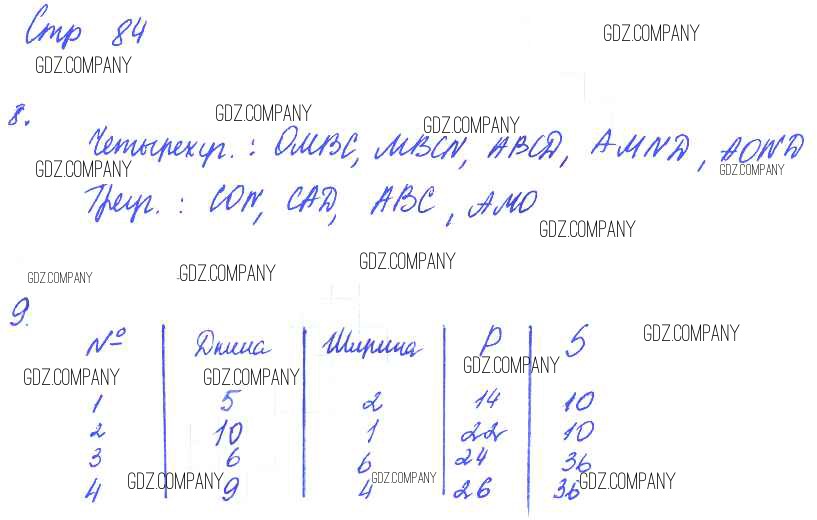 Стр 84
GDZ.COMPANY
GDZ.COMPANY
8.
GDZ.COMPANY
GDZ.COMPANY
Четырехуг. : OMBC, MBCN, ABCD, AMND, AOND
GDZ.COMPANY
GDZ.COMPANY
Треуг. : CON, CAD, ABC, AMO
GDZ.COMPANY
GDZ.COMPANY
GDZ.COMPANY
GDZ.COMPANY
9.
GDZ.COMPANY
№ Длина Ширина P S
GDZ.COMPANY
GDZ.COMPANY
GDZ.COMPANY
1 5 2 14 10
2 10 1 22 10
3 6 6 24 36
4 9 4 26 36
GDZ.COMPANY
GDZ.COMPANY
GDZ.COMPANY